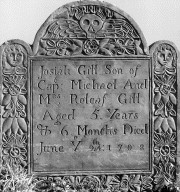 Josiah Gill Son of
Cap: Michael And
Mrs Relesf Gill
Aged 5 Years
& 6 Months Died
June Ye